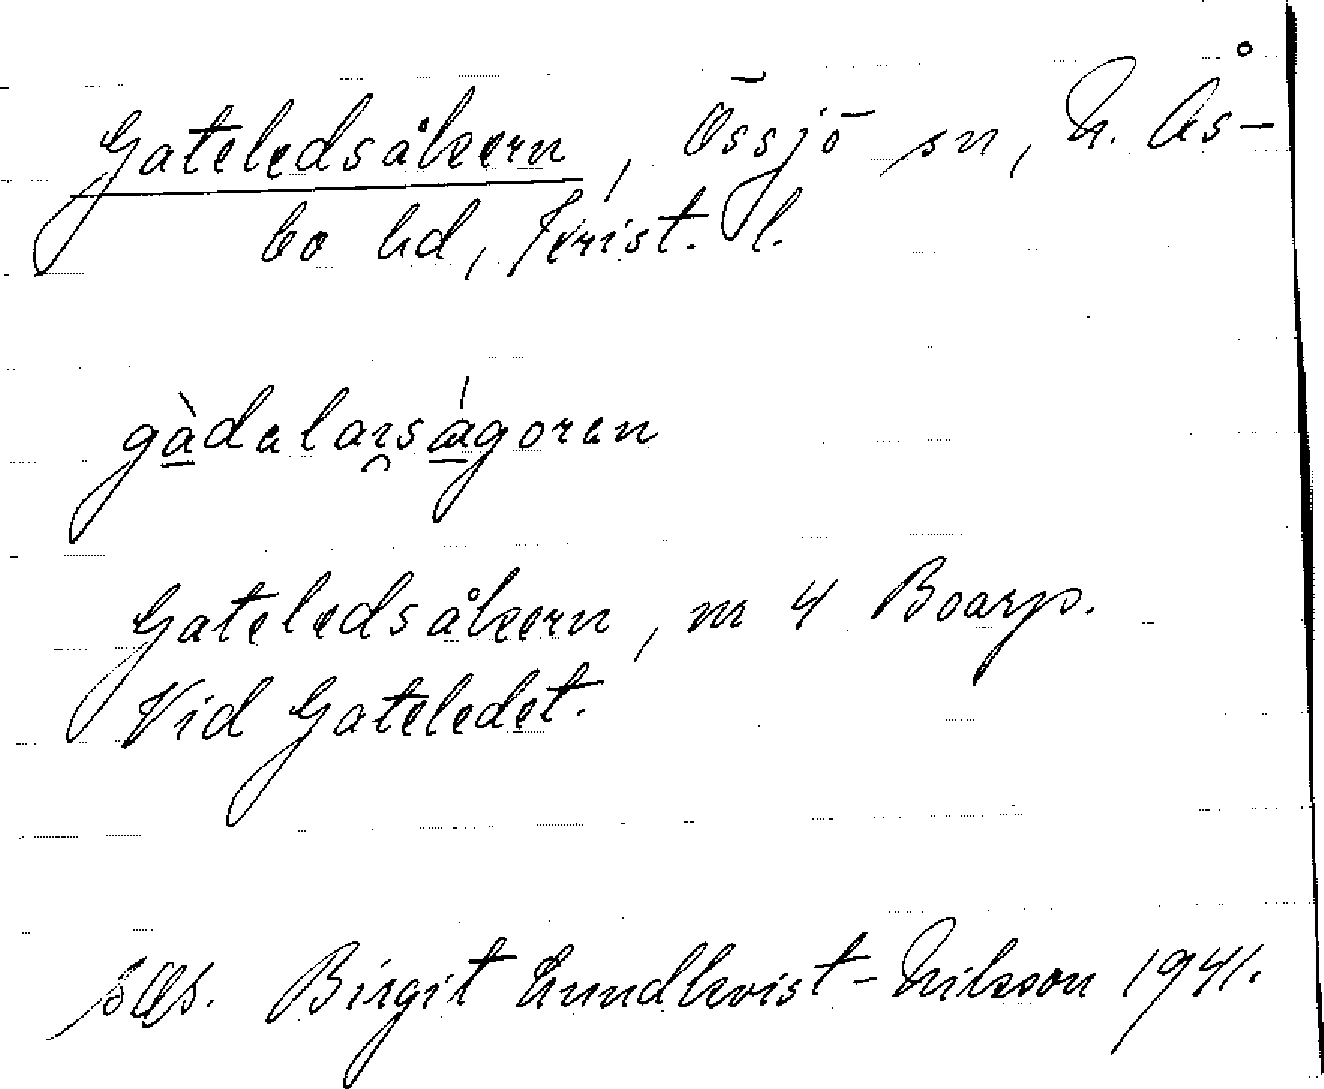 Gateledsåkern, Össjö sn, N. Ås-
bo hd, Krist. l.
gàdalarságoran
Gateledsåkern, m 4 Boarp.
Vid Gateledet.
Birgit Lundkvist-Nilsson 1941.